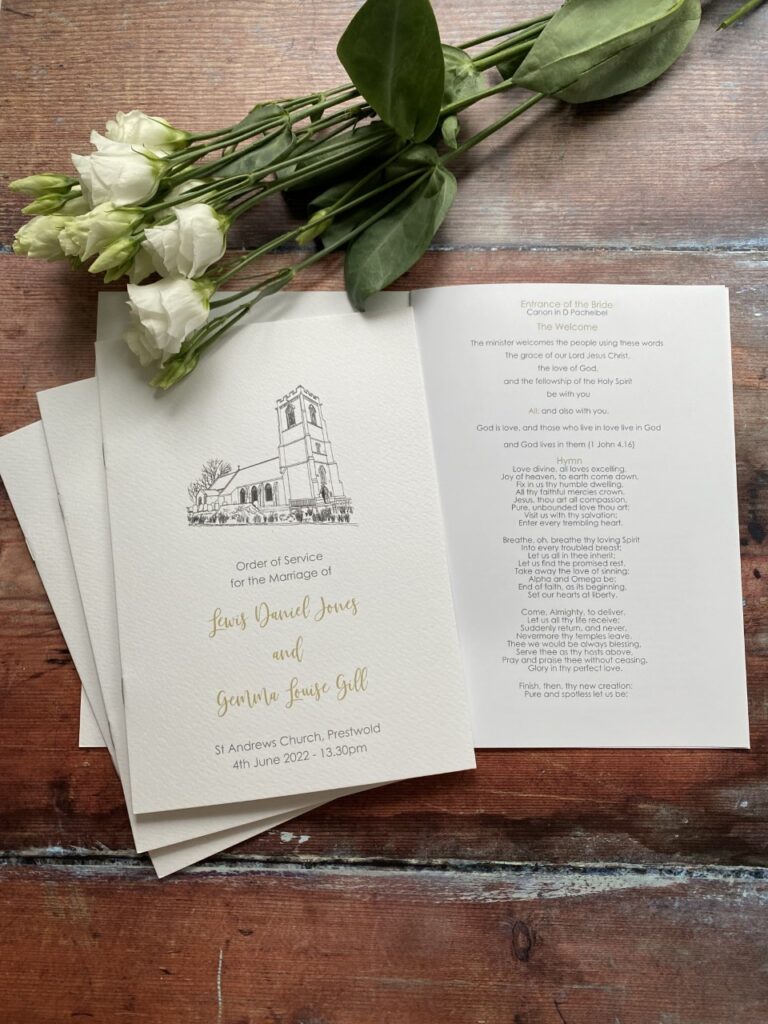 Order of Service
for the Marriage of
Lewis Daniel Jones
and
Gemma Louise Gill
St Andrews Church, Prestwold
4th June 2022 - 13.30pm
Entrance of the Bride
Canon in D Pachelbel
The Welcome
The minister welcomes the people using these words
The grace of our Lord Jesus Christ,
the love of God,
and the fellowship of the Holy Spirit
be with you
All: and also with you.
God is love, and those who live in love live in God
and God lives in them (1 John 4.16)
Hymn
Love divine, all loves excelling,
Joy of heaven, to earth come down,
Fix in us thy humble dwelling,
All thy faithful mercies crown.
Jesus, thou art all compassion,
Pure, unbounded love thou art;
Visit us with thy salvation;
Enter every trembling heart.
Breathe, oh, breathe thy loving Spirit
Into every troubled breast;
Let us all in thee inherit;
Let us find the promised rest.
Take away the love of sinning;
Alpha and Omega be;
End of faith, as its beginning,
Set our hearts at liberty.
Come, Almighty, to deliver,
Let us all thy life receive;
Suddenly return, and never,
Nevermore thy temples leave.
Thee we would be always blessing,
Serve thee as thy hosts above,
Pray and praise thee without ceasing,
Glory in thy perfect love.
Finish, then, thy new creation;
Pure and spotless let us be;